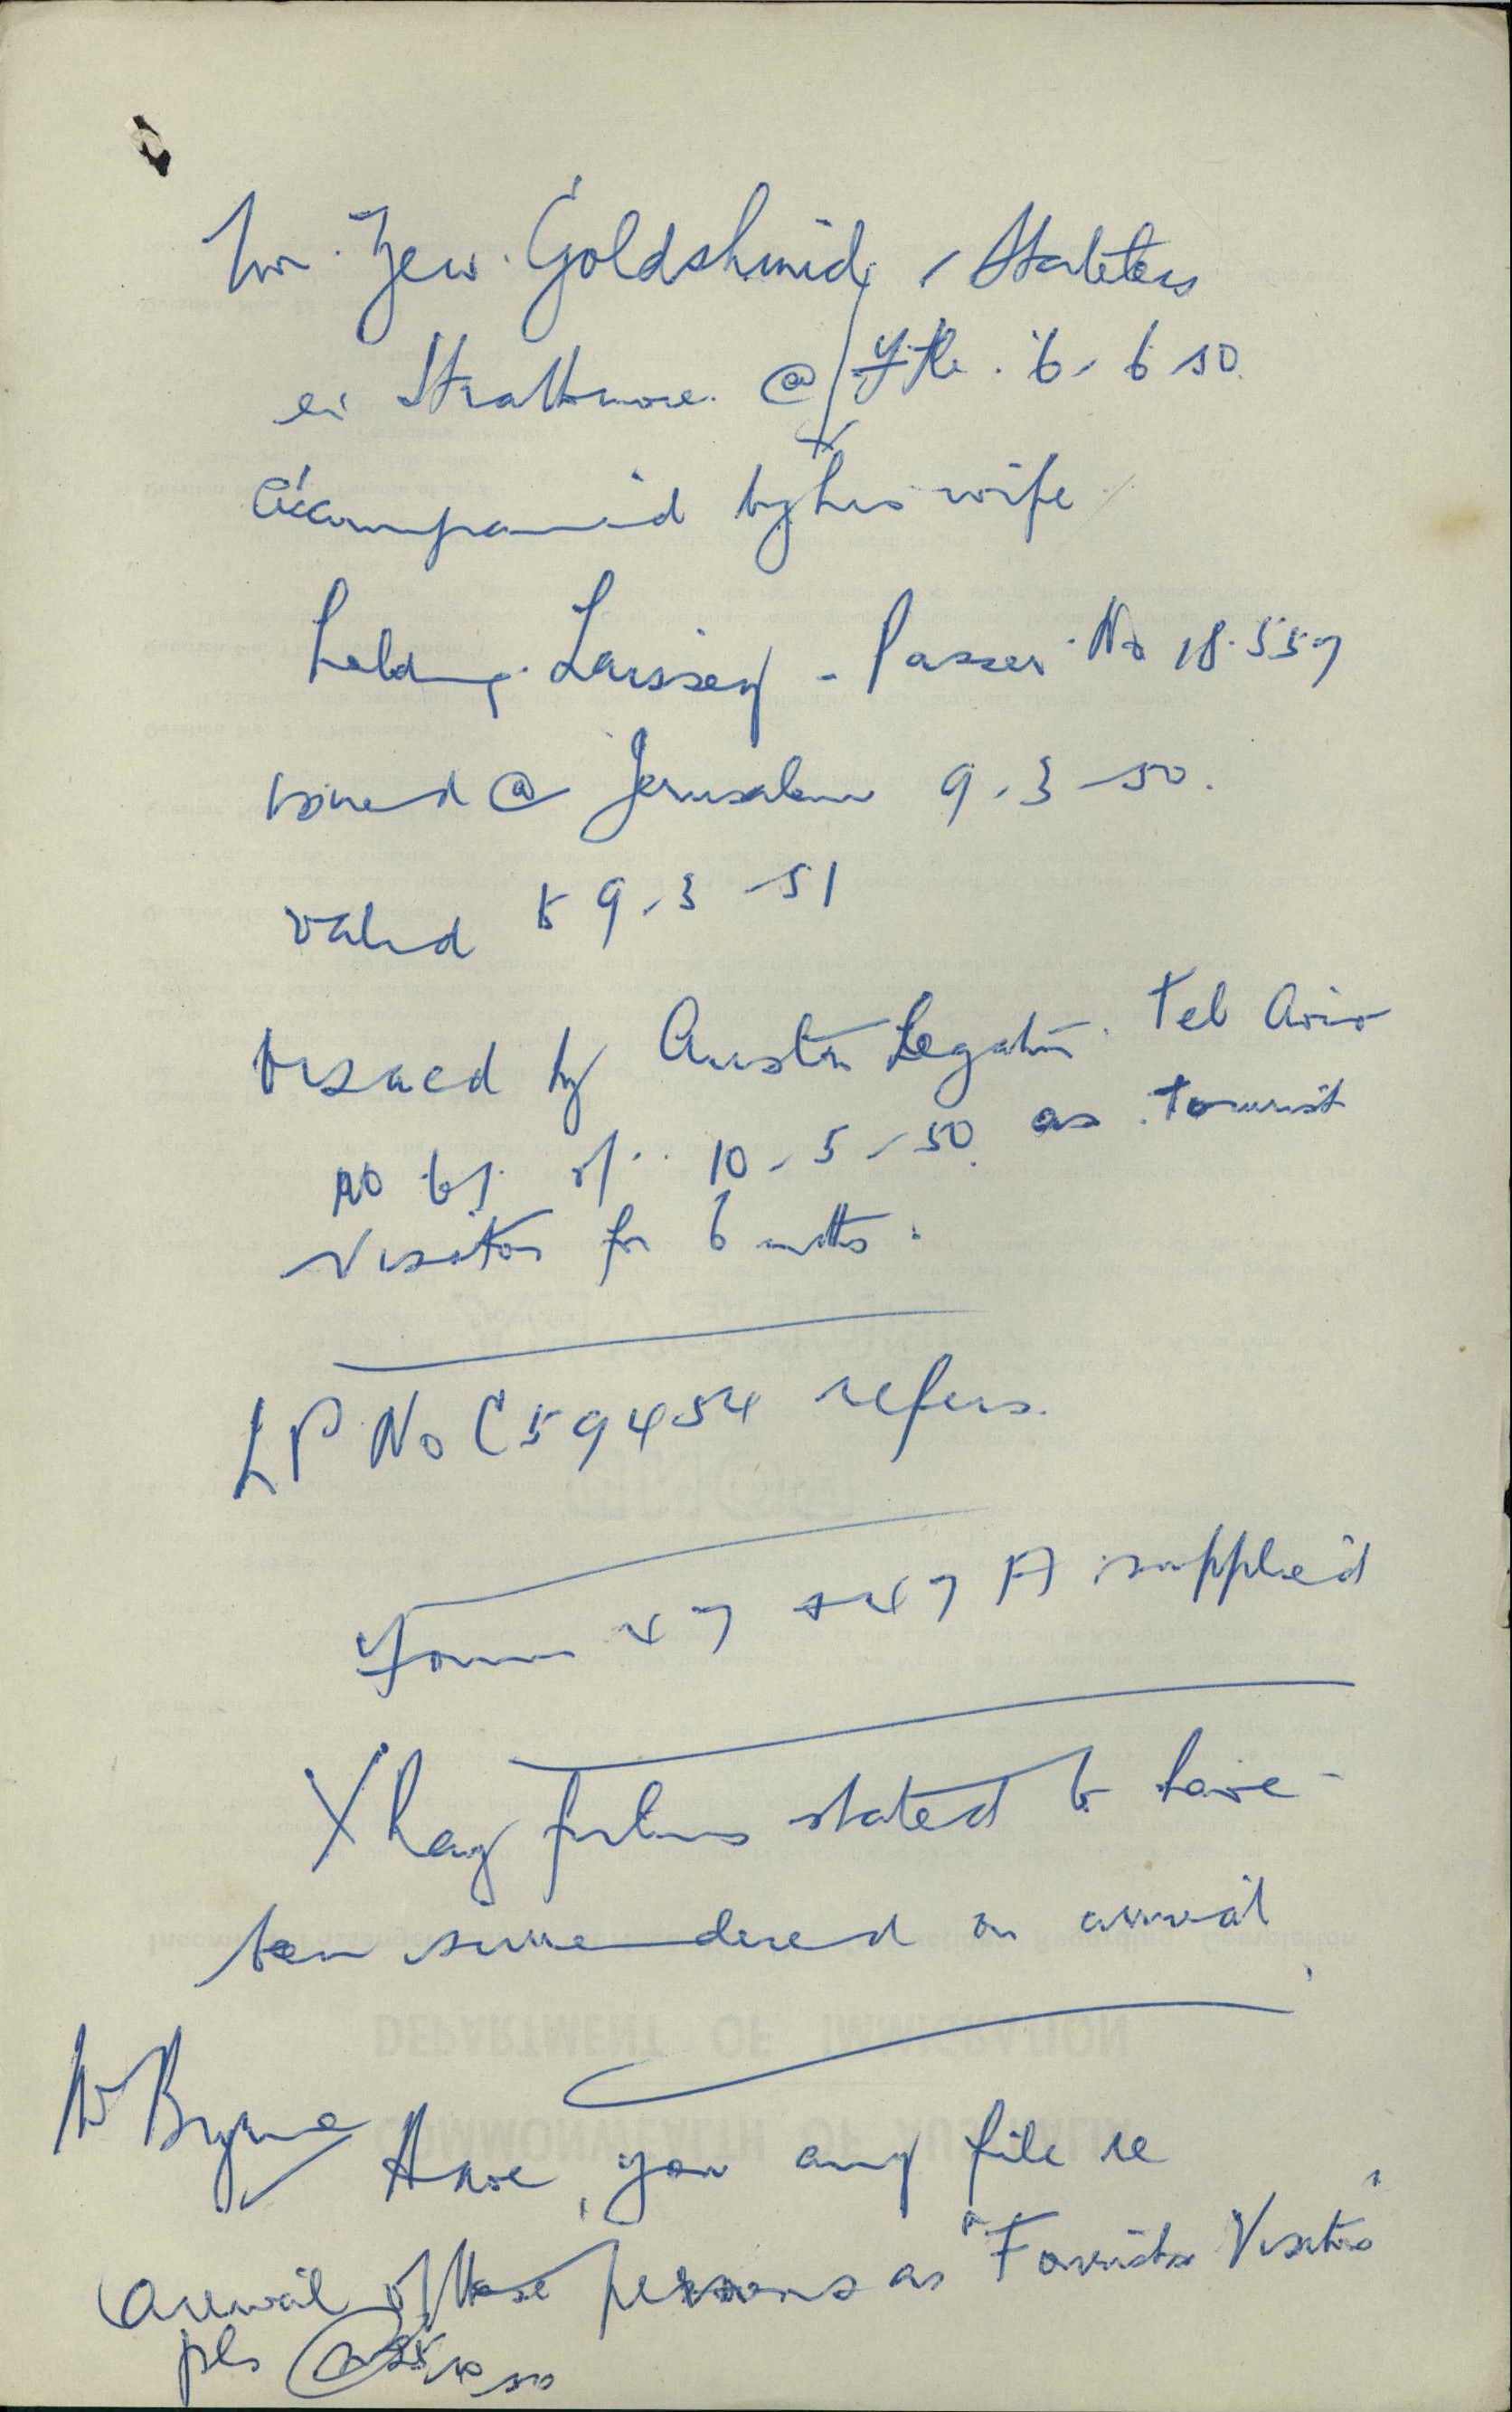 Mr. Zew. Goldshmid, Stateless
ex Strathmore @ F'tle. 6-6 50
accompanied by his wife
holding Laissez - Passer No 18.557
issued @ Jerusalem 9.3-50.
valid to 9.3-51
visaed by Austn Legatn. Tel Aviv
no 61 of 10-5-50 as tourist
visitor for 6 mths.
LP No C59454 refers.
Form 47 & 47A supplied
X Ray films stated to have
been surrendered on arrival
Mr Byrne
Have you any file re
arrival of these persons as "Tourists Visitors"
pls